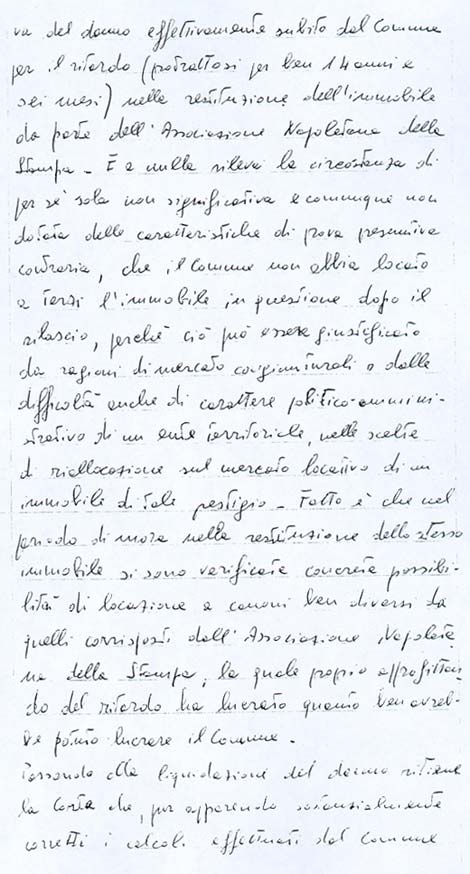 va del danno effettivamente subito dal Comune
per il ritardo (protrattosi per ben 14 anni e
sei mesi) nella restituzione dell'immobile
da parte dell'Associazione Napoletana della
Stampa - E a nulla rileva la circostanza di
per sé sola non significativa e comunque non
dotata delle caratteristiche di prova presuntiva
contraria, che il Comune non abbia locato
a terzi l'immobile in questione dopo il
rilascio, perché ciò può essere giustificato
da ragioni di mercato congiunturali o dalle
difficoltà anche di carattere politico-ammini-
strativo di un ente territoriale, nelle scelte
di riallocazione sul mercato locativo di un
immobile di tale prestigio - Fatto è che nel
periodo di mora nella restituzione dello stesso
immobile si sono verificate concrete possibi-
lità di locazione a canoni ben diversi da
quelli corrisposti dall'Associazione Napoleta
na della Stampa, la quale proprio approfittan
do del ritardo ha lucrato quanto ben avreb-
be potuto lucrare il Comune -
Passando alla liquidazione del danno ritiene
la Corte che, pur apparendo sostanzialmente
corretti i calcoli effettuati dal Comune